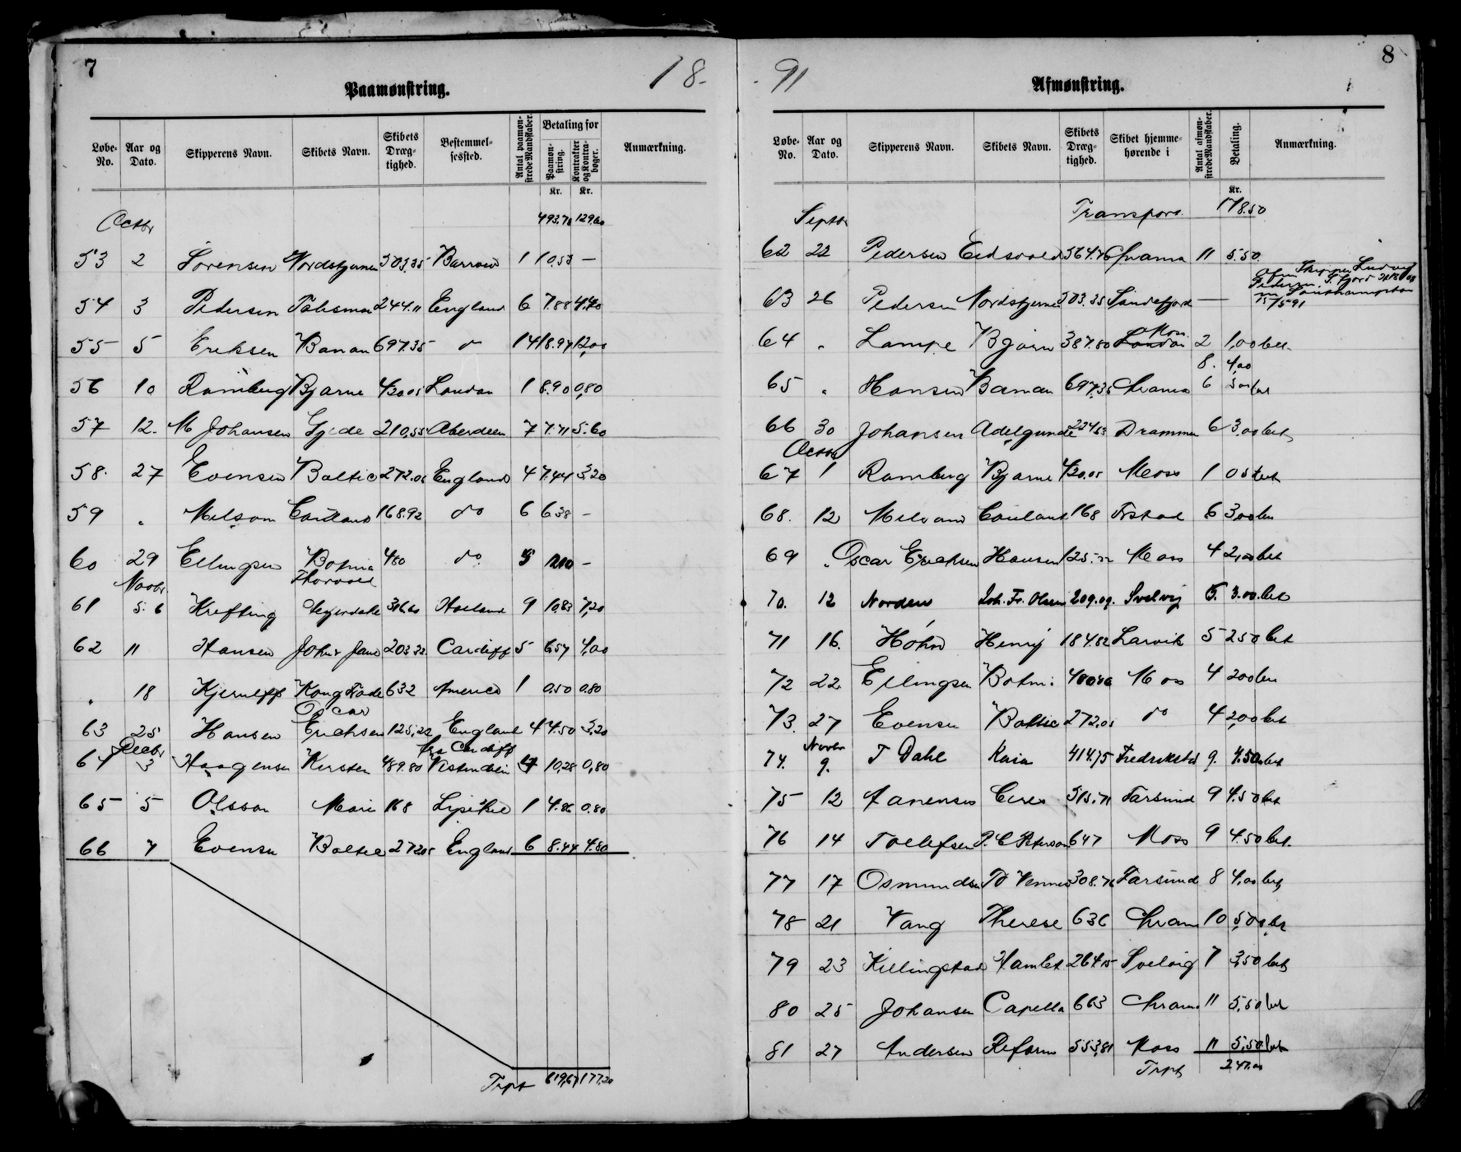 7
18-
Paamønstring.
Løbe-No. | Aar og Dato. | Skipperens Navn. | Skibets Navn. | Skibets Dræg-tighed. | Bestemmel-sessted. | Antal paamøn-strede Mandskaber. | Betaling for Paamøn-string. Kr. | Kontrakter og Kontra-bøger. Kr. | Anmærkning.
Octbr 493,70 129,60
53 2 Sørensen Nordstjernen 303,35 Barrow 1 10,53 —
54 3 Pedersen Talisman 244.11 England 6 7.88 4,40
55 5 Eriksen Banan 697.35 do 14 18.97 12,00
56 10 Ramberg Bjarne 420.05 London 1 8.90 0,80
57 12. M Johansen Gjede 210,55 Aberdeen 7 7.71 5.60
58. 27 Evensen Baltic 272.05 England 4 7.44 3,20
59 " Nelson Couland 168.92 do 6 6 38 —
60 29 Ellingsen Botnia 480 do —
Novbr Thorvald
61 5. 6 Krefting 9 10,83 7,20
62 11 Hansen John & Jane 203 32 Cardiff 5 6 57 4,00
" 18 Kjerulff Kong 632 America 1 0,50 0.80
Oscar
63 25 Hansen Erichsen 125,22 England 4 4.50 3,20
Decbr fra Cardiff
64 3 Haagensen Kersten 489.80 Vestindien 10,28 0,80
65 5 Olsson Marie 168 Lysekil 1 4.86 0.80
66 7 Evensen Baltic 272.05 England 6 8.44 4.80
Trpt 619,67 177,20
8
91
Afmønstring.
Løbe-No. | Aar og Dato. | Skipperens Navn. | Skibets Navn. | Skibets Dræg-tighed. | Skibet hjemme-hørende i | Antal afmøn-strede Mandskaber. | Betaling. Kr. | Anmærkning.
Septbr Transport 178.50
62 22 Pedersen Eidsvold 564.76 Chrania 11 5.50
Skipper Ludvig
Pedersen
Southampton
63 26 Pedersen Nordstjernen 303.35 Sandefjord —
Moss
64 " Lampe Bjørn 387.80 London 2 1,00 bet
8. 4,00
65 " Hansen Banan 697,35 Chrania 6
66 30 Johansen Adelgunde 224.53 Drammen 6 3.00 bet
Octbr
67 1 Ramberg Bjarne 420.05 Moss 1 0 50 bet
68. 12 Nelson Couland 168 Frstad 6 3,00 bet
69 " Oscar Erichsen Hansen 125.22 Moss 4 2,00 bet
70. 12 Norden Joh. Fr. Olsen 209.09. Svelvig 6. 3.00. bet
71 16. Høhn Henrij 184.82 Larvik 5 2 50 bet
72 22 Ellingsen Botni. 480 Moss 4 2 00 bet
73. 27 Evensen Baltic 272.05 do 4 2,00 bet
Novbr
74. 9. T Dahl Kaia 414.75 Fredrikstad 9. 4.50 bet
75 12 Aanensen Ceres 315.71 Farsund 9 4.50 bet
76 14 Tollefsen P. C. Peterson 647 Moss 9 4.50 bet.
77 17 Osmundsen 308.76 Farsund 8 4,00 bet
78 21 Vang Therese 636 Chrania 10 5,00 bet
79 23 Killingstad Hamlet 264.15 Svelvig 7 3,50 bet
80 25 Johansen Capella 663 Chrania 11 5,50 bet
81 27 Andersen Reform 553,81 Moss 11 5,50 bet
Trpt 247.00